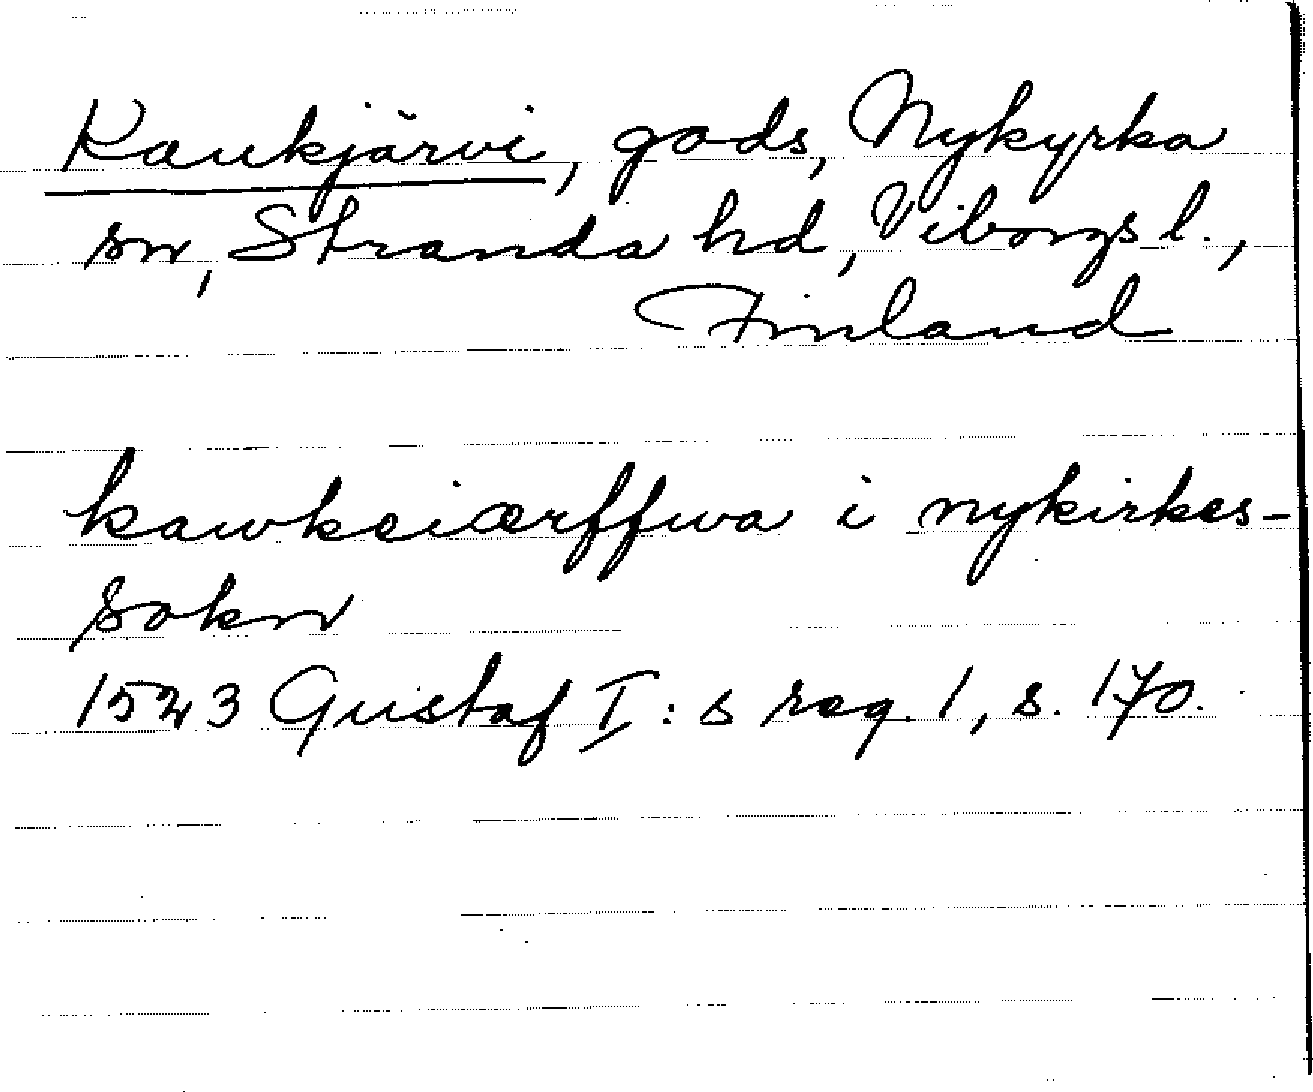 Kaukjärvi, gods, Nykyrka
sn, Stranda hd, Viborgs l.,
Finland
kawkeiærffwa i nykirkes-
sokn
1523 Gustaf I: s reg. 1, s. 170.